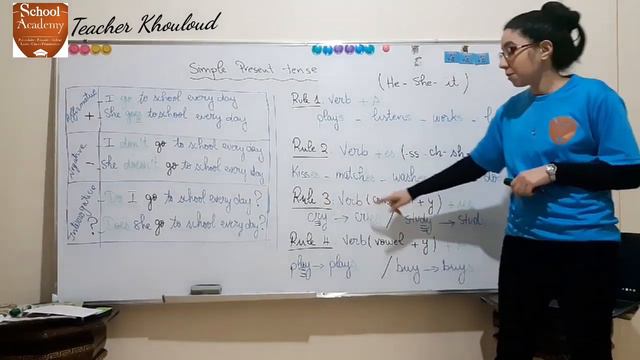 School
Academy
Teacher Khouloud
Simple Present tense
(He - She - it)
Affirmative
+
I go to school every day
She goes to school every day
Negative
-
I don't go to school every day
She doesn't go to school every day
Interrogative
?
Do I go to school every day?
Does She go to school every day?
Rule 1: Verb + s
plays - listens - works -
Rule 2: Verb + es (-ss - ch - sh -
Kisses - matches - washes - do
Rule 3: Verb (con + y)
cry → cries / study → stud
Rule 4: Verb (vowel + y)
play → plays / buy → buys